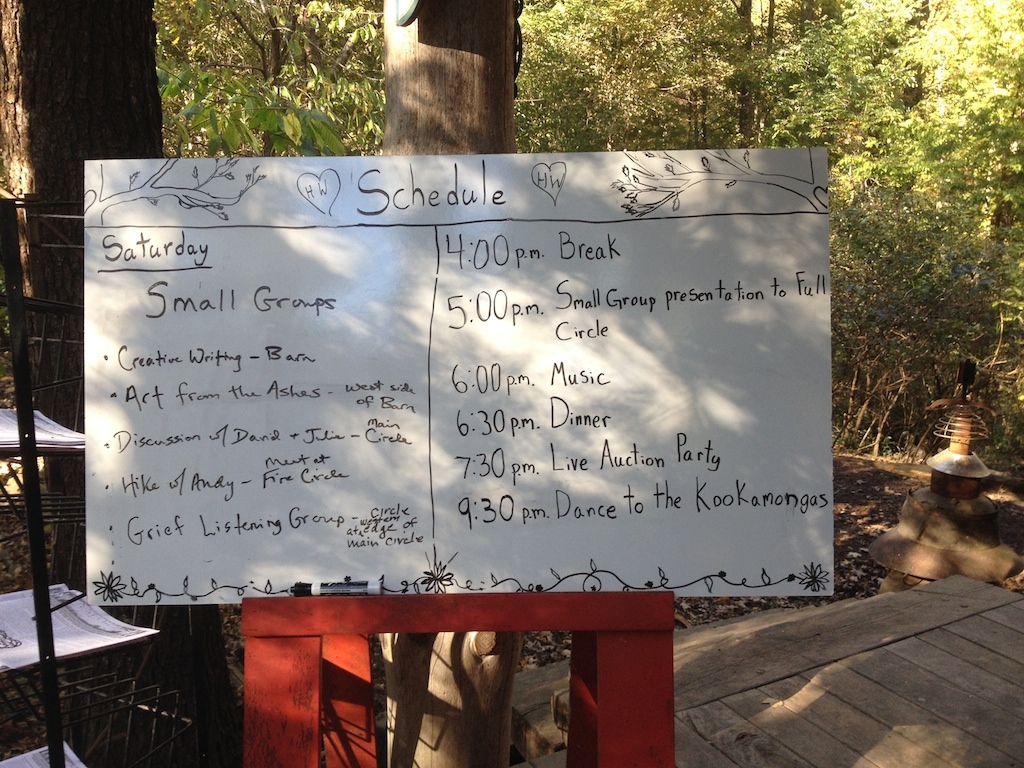 HW Schedule HW
Saturday
Small Groups
• Creative Writing - Barn
• Art from the Ashes - west side
of Barn
• Discussion w/ David + Julie - main
Circle
• Hike w/ Andy - meet at
Fire Circle
• Grief Listening Group - circle
at western
edge of
main circle
4:00 p.m. Break
5:00 p.m. Small Group presentation to Full
Circle
6:00 p.m. Music
6:30 p.m. Dinner
7:30 p.m. Live Auction Party
9:30 p.m. Dance to the Kookamongas